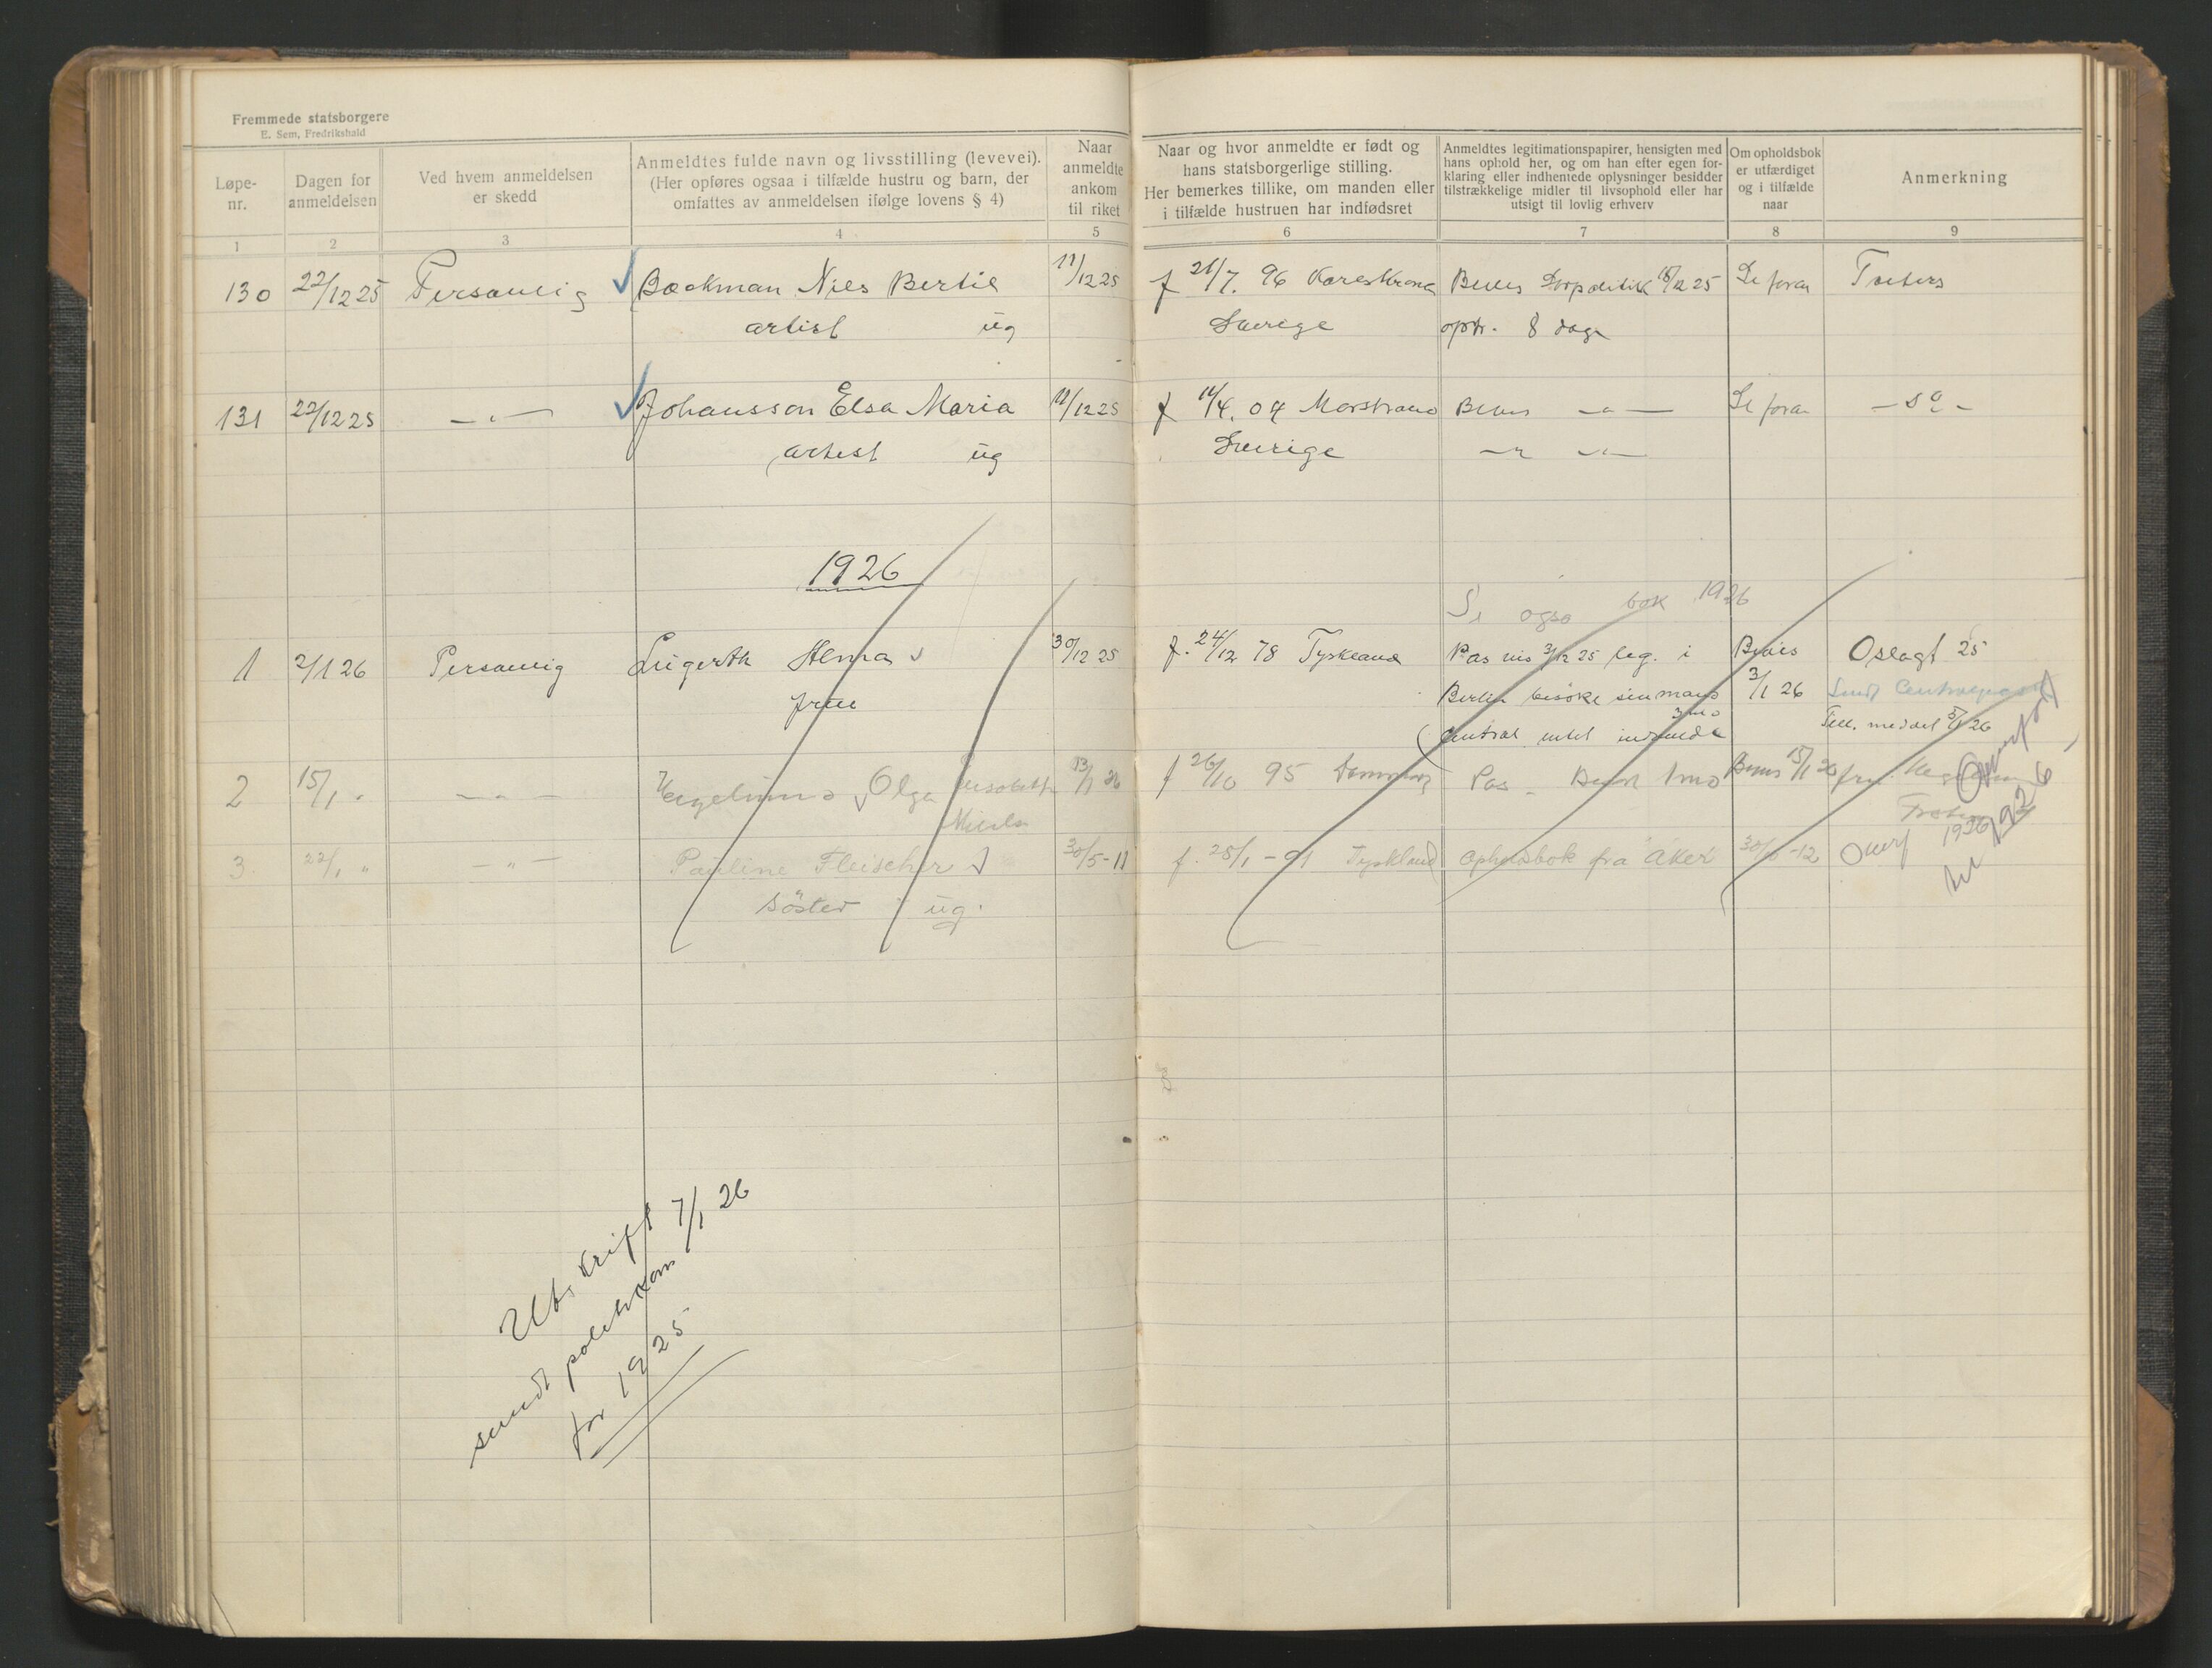 Fremmede statsborgere
E. Sem, Fredrikshald
Løpe-nr.
Dagen for anmeldelsen
Ved hvem anmeldelsen er skedd
Anmeldtes fulde navn og livsstilling (levevei).
(Her opføres ogsaa i tilfælde hustru og barn, der
omfattes av anmeldelsen ifølge lovens § 4)
Naar anmeldte ankom til riket
Naar og hvor anmeldte er født og
hans statsborgerlige stilling.
Her bemerkes tillike, om manden eller
i tilfælde hustruen har indfødsret
Anmeldtes legitimationspapirer, hensigten med
hans ophold her, og om han efter egen for-
klaring eller indhentede oplysninger besidder
tilstrækkelige midler til livsophold eller har
utsigt til lovlig erhverv
Om opholdsbok
er utfærdiget
og i tilfælde
naar
Anmerkning
1 2 3 4 5 6 7 8 9
130 22/12 25 Personlig Backman Nils Bertil 11/12 25 f 21/7. 96 Karlskrona Bevis 18/12 25 Se foran
artist ug Sverige opt. 8 dage
131 22/12 25 — " — Johansson Elsa Maria 11/12 25 f 14/4. 04 Marstrand Bevis — " — Se foran — so —
artist ug Sverige — " — " —
1926
Se også bok 1926
1 2/1 26 Personlig 30/12 25 f. 24/12 78 Tyskland Pas vis 3/12 25 leg. i Bevis Oslagt 25
frue Berlin besøke sin mand 3/1 26 Sendt Centralpas
3 mo
Central intet indsendt Tell. meddel 5/1 26
2 15/1 " — " — Olga 13/1 26 f 26/10 95 Danmark Pas - Besøk 1 mo Bevis 15/1 26
3 22/1 " — " — Pauline Fleischer 30/5-11 f. 25/1-91 Tyskland opholdsbok fra Aker 30/5-12 Overf 1926
söster ug.
Overført
til 1926
Utskrift 7/1 26
sendt politikam
for 1925